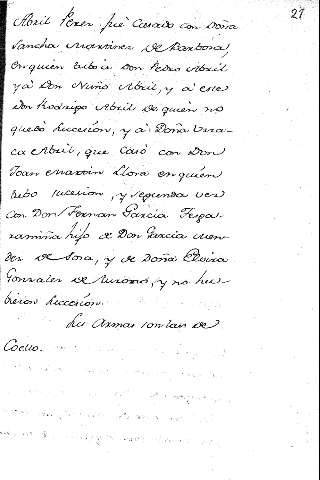 27
Abril Perez fué Casado con Doña
Sancha Martinez de Barbosa,
en quien tubo a Don Pedro Abril
y à Don Nuño Abril, y à este
Don Rodrigo Abril de quien no
quedò Succesion, y à Doña Urra-
ca Abril, que Casò con Don
Joan Martin Llora en quien
tubo sucesion, y segunda vez
con Don Fernan Garcia Espa-
ramiña hijo de Don Garcia Men-
dez de Sosa, y de Doña Elvira
Gonzalez de, y no hu-
bieron Succesion.
Sus Armas son las de
Coello.